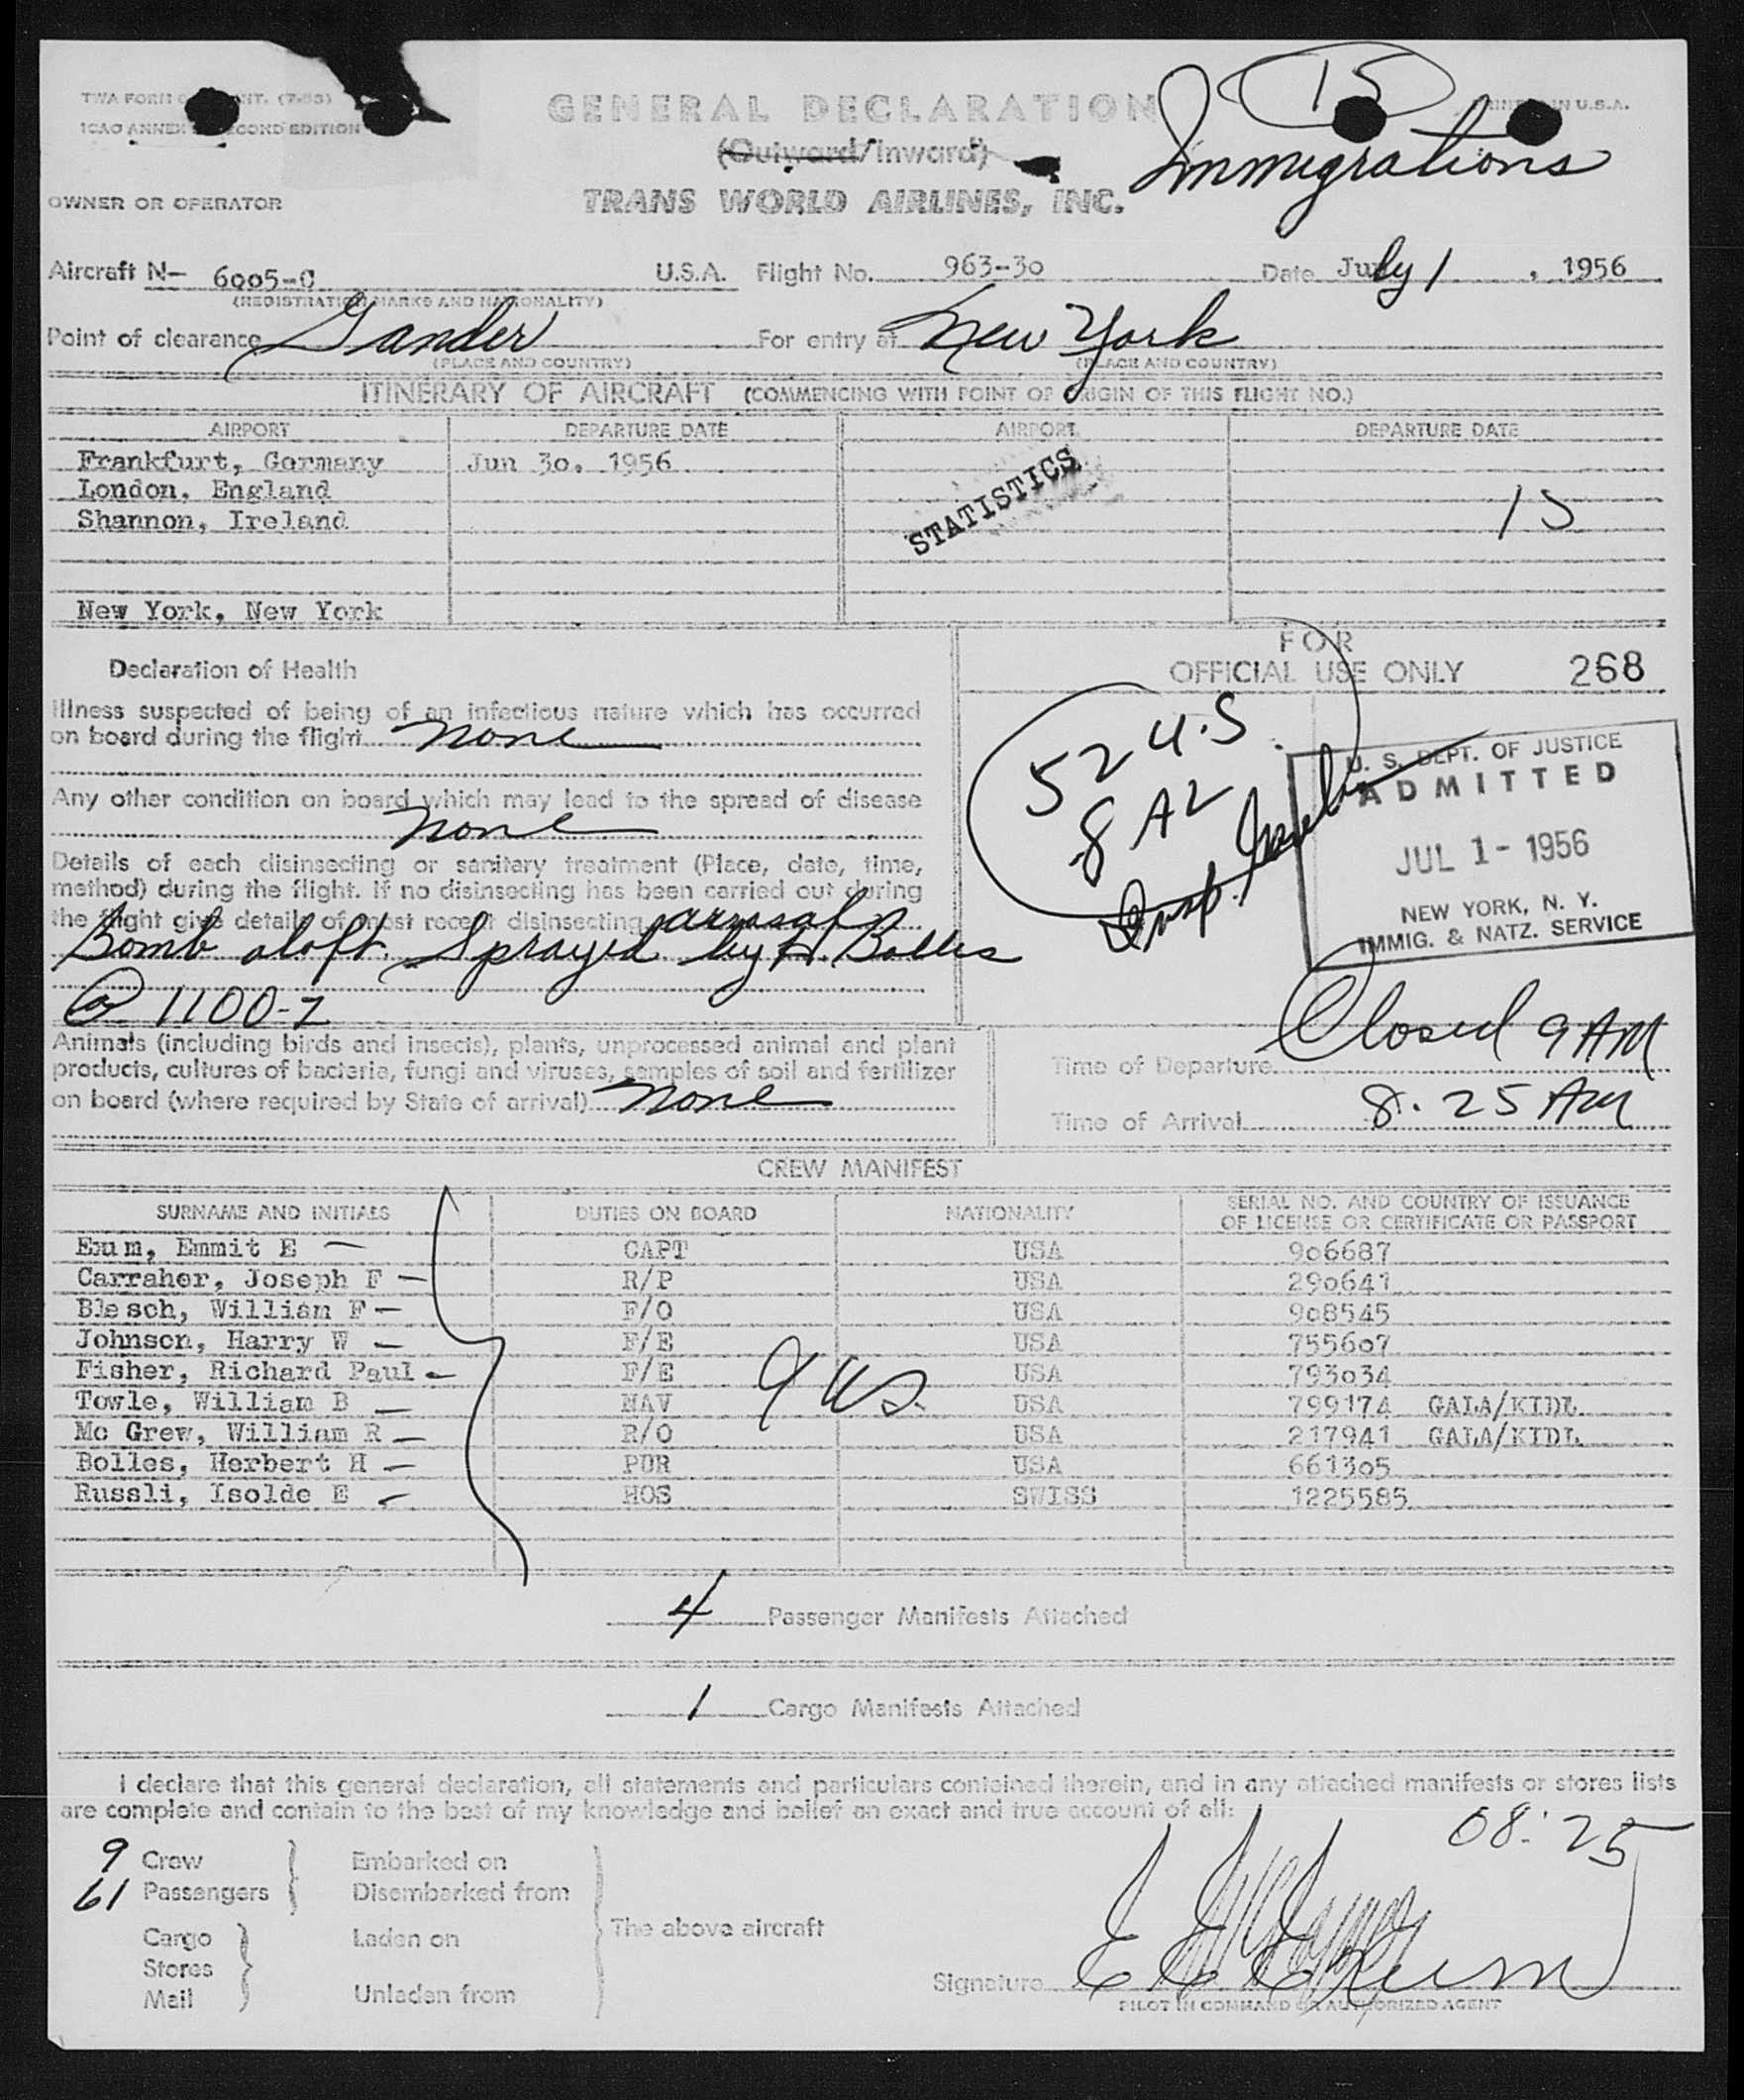 15
TWA FORM INT. (7-55)
ICAO ANNEX SECOND EDITION
GENERAL DECLARATION
IN U.S.A.
(Outward/Inward)
Immigrations
OWNER OR OPERATOR
TRANS WORLD AIRLINES, INC.
Aircraft N- 6005-C U.S.A. Flight No. 963-30 Date July 1, 1956
(REGISTRATION MARKS AND NATIONALITY)
Point of clearance Gander For entry at New York
(PLACE AND COUNTRY) (PLACE AND COUNTRY)
ITINERARY OF AIRCRAFT (COMMENCING WITH POINT OF ORIGIN OF THIS FLIGHT NO.)
AIRPORT DEPARTURE DATE AIRPORT DEPARTURE DATE
Frankfurt, Germany Jun 30, 1956
London, England
Shannon, Ireland
STATISTICS
15
New York, New York
FOR
OFFICIAL USE ONLY 268
Declaration of Health
Illness suspected of being of an infectious nature which has occurred
on board during the flight None
Any other condition on board which may lead to the spread of disease
None
Details of each disinsecting or sanitary treatment (Place, date, time,
method) during the flight. If no disinsecting has been carried out during
the flight give details of most recent disinsecting
Bomb aloft. Sprayed by H. Bolles
@ 1100-Z
52 U.S
8 AL
Insp.
U. S. DEPT. OF JUSTICE
ADMITTED
JUL 1 - 1956
NEW YORK, N. Y.
IMMIG. & NATZ. SERVICE
Animals (including birds and insects), plants, unprocessed animal and plant
products, cultures of bacteria, fungi and viruses, samples of soil and fertilizer
on board (where required by State of arrival) None
Closed 9 AM
Time of Departure
Time of Arrival 8.25 AM
CREW MANIFEST
SURNAME AND INITIALS DUTIES ON BOARD NATIONALITY SERIAL NO. AND COUNTRY OF ISSUANCE
OF LICENSE OR CERTIFICATE OR PASSPORT
Exum, Emmit E CAPT USA 906687
Carraher, Joseph F R/P USA 290641
Blesch, William F F/O USA 908545
Johnson, Harry W F/E USA 755607
Fisher, Richard Paul F/E USA 793034
Towle, William B NAV USA 799174 GALA/KIDL
Mc Grew, William R R/O USA 217941 GALA/KIDL
Bolles, Herbert H PUR USA 661305
Russli, Isolde E HOS SWISS 1225585
9 US
4 Passenger Manifests Attached
1 Cargo Manifests Attached
I declare that this general declaration, all statements and particulars contained therein, and in any attached manifests or stores lists
are complete and contain to the best of my knowledge and belief an exact and true account of all:
08:25
9 Crew Embarked on
61 Passengers Disembarked from
The above aircraft
Cargo Laden on
Stores
Mail Unladen from
Signature E E Exum
PILOT IN COMMAND OR AUTHORIZED AGENT